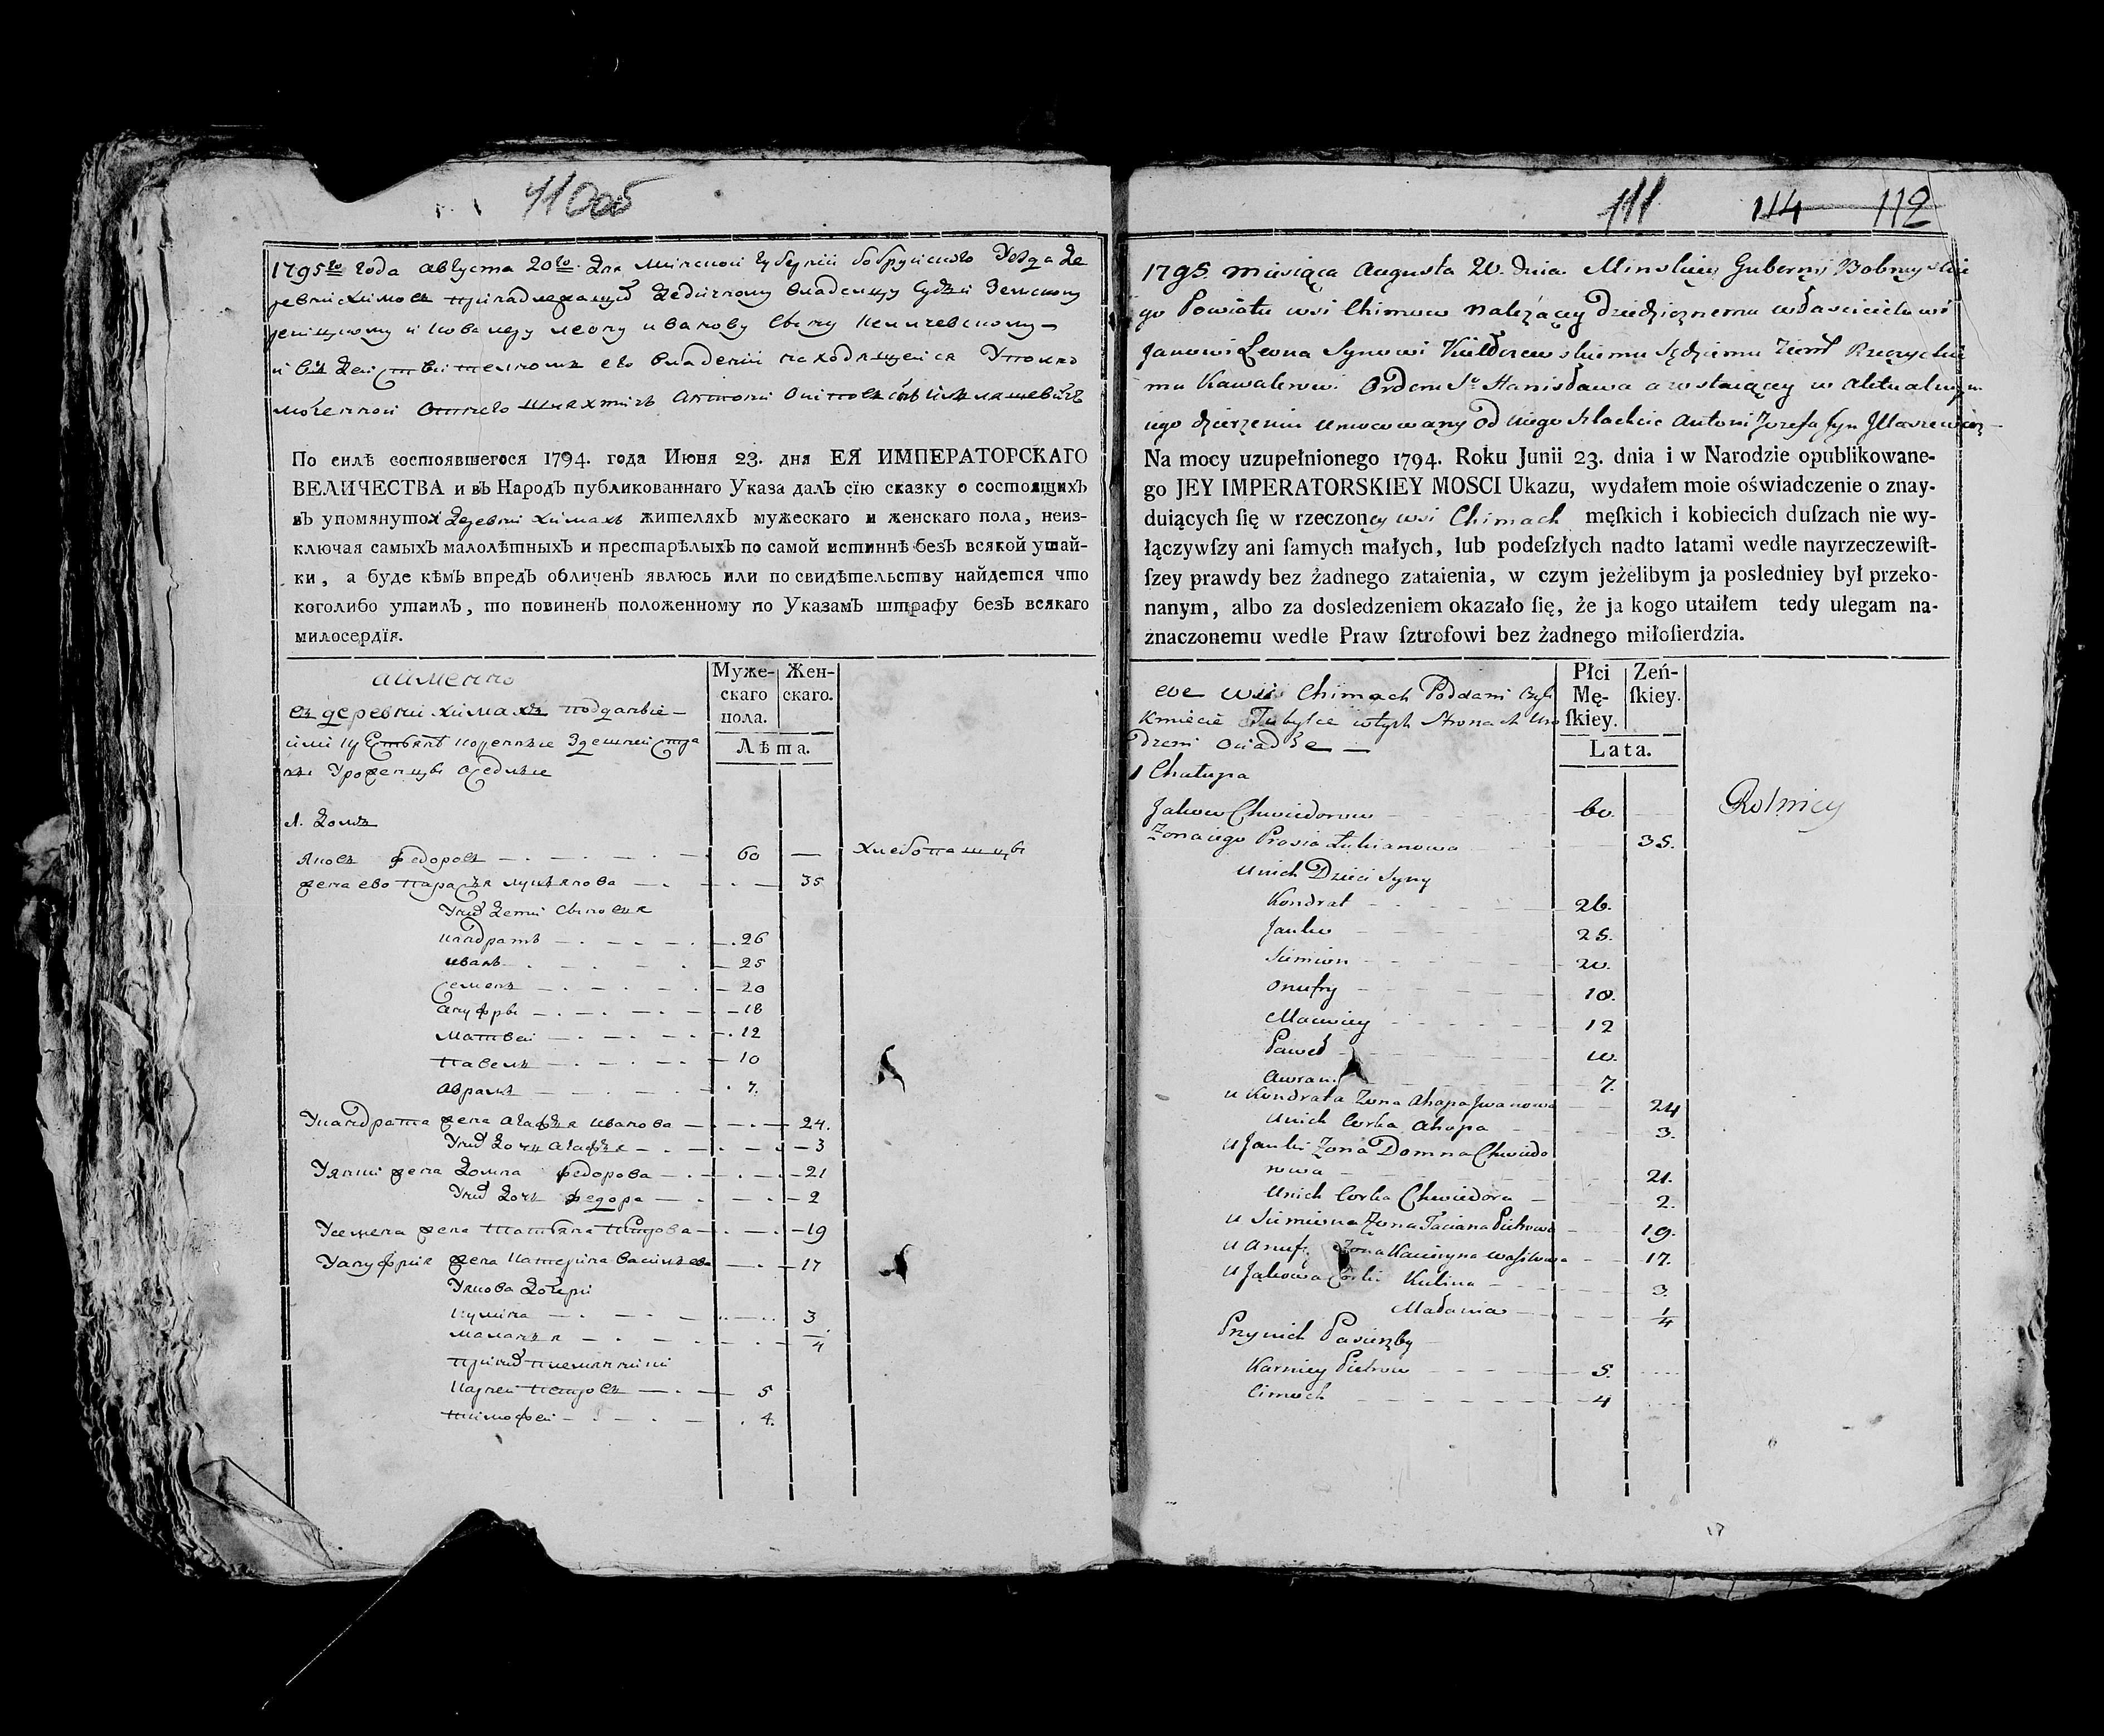 110об
1795го года августа 20го дня Минской губернии бобруйского уезда де
ревни Химовъ принадлежащей дедичному владельцу Судьи Земскому
речицкому и кавалеру леону иванову сыну
и въ действительномъ ево владении находящейся Упо
моченной отнего шляхтичь антони
По силѣ состоявшегося 1794. года Июня 23. дня ЕЯ ИМПЕРАТОРСКАГО
ВЕЛИЧЕСТВА и въ Народъ публикованнаго Указа далъ сїю сказку о состоящихъ
въ упомянутой деревни химахъ жителяхъ мужескаго и женскаго пола, неиз-
ключая самыхъ малолѣтныхъ и престарѣлыхъ по самой истиннѣ безъ всякой утай-
ки, а буде кѣмъ впредъ обличенъ явлюсь или по свидѣтельству найдется что
коголибо утаилъ, то повиненъ положенному по Указамъ штрафу безъ всякаго
милосердїя.
аименно
въ деревни химахъ подданые
Муже-скаго пола. Жен-скаго.
Лѣта.
уроженцы оседлые
1. Домъ
Яковъ федоровъ 60 — хлебопашцы
жена ево Парасья лукьянова 35
У них дети сыновья
кандратъ 26
иванъ 25
Семенъ 20
ануфры 18
матвей 12
павелъ 10
аврамъ 7.
Укандрата жена агафья иванова 24.
У них дочь агафья 3
Уянки жена домна федорова 21
У них дочь федора 2
Усемена жена татьяна петрова 19
Уануфрия жена катерина васильева 17
Уякова дочери
кулина 3
маланья 1/4
при них племянники
карней петровъ 5
тимофей 4.
111 114 112
1795. miesiąca Augusta 20. dnia Minskiey Gubernij Bobruyskie
go Powiatu wsi Chimow należący dziedzicznemu właścicielowi
Janowi Leona Synowi Sędziemu Ziem Rzeczyckie
mu Kawalerowi Orderu St Stanisława a zostaiący w aktualnym
iego dzierżeniu umocowany od niego szlachcic Antoni Jozefa syn
Na mocy uzupełnionego 1794. Roku Junii 23. dnia i w Narodzie opublikowane-
go JEY IMPERATORSKIEY MOSCI Ukazu, wydałem moie oświadczenie o znay-
duiących ſię w rzeczoney wsi Chimach męſkich i kobiecich duſzach nie wy-
łączywſzy ani ſamych małych, lub podeſzłych nadto latami wedle nayrzeczewiſt-
ſzey prawdy bez żadnego zataienia, w czym jeżelibym ja posledniey był przeko-
nanym, albo za dosledzeniem okazało ſię, że ja kogo utaiłem tedy ulegam na-
znaczonemu wedle Praw ſztrofowi bez żadnego miłoſierdzia.
we wsi Chimach Poddani czyli
Kmiecie Tubylce w tych Stronach Uro
dzeni osiadłe —
Płci Mę-ſkiey. Zeń-ſkiey.
Lata.
1 Chałupa
Jakow Chwiedorow 60. Rolnicy
Zona iego Prosia Łukianowa 35.
u nich Dzieci Syny
Kondrat 26.
Janko 25.
Siemion 20.
Onufry 18.
Maciwiey 12
Paweł 10.
Awram 7.
u Kondrata Zona Ahapa Jwanowa 24
u nich Corka Ahapa 3.
u Janki Zona Domna Chwiedo
rowa 21.
u nich Corka Chwiedora 2.
u Siemiona Zona Taciana Pietrowa 19.
u Anufr Zona Kateryna Wasilowa 17.
u Jakowa Corki Kulina 3.
Małania 1/4
Przynich Pasierzby
Karniey Pietrow 5.
Cimoch 4
17